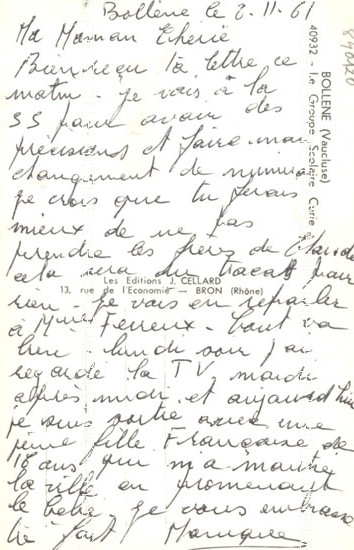 Bollène le 2.11.61
Ma Maman Chérie
Bien reçu ta lettre ce
matin. je vais à la
SS pour avoir des
précisions et faire mon
changement de
je crois que tu ferais
mieux de ne pas
prendre les de
cela sera du tracas pour
rien. je vais en reparler
à Mme Ferreux. tout va
bien. lundi soir j'ai
regardé la TV, mardi
après midi et aujourd'hui
je suis sortie avec une
jeune fille Française de
18 ans qui m'a montré
la ville en promenant
le bébé. je vous embrasse
très fort Monique
BOLLENE (Vaucluse)
40932 - Le Groupe Scolaire Curie
Les Editions J. CELLARD
13, rue de l'Economie — BRON (Rhône)